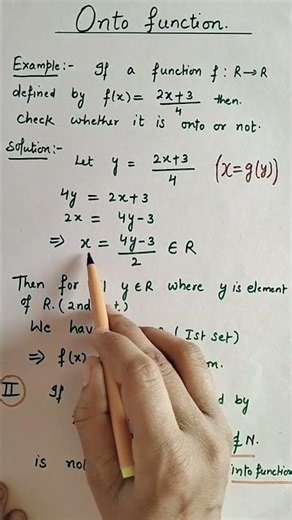 Onto function.
Example:- If a function f: R→R
defined by f(x) = 2x+3/4 then.
Check whether it is onto or not.
Solution:- Let y = 2x+3/4 (x=g(y))
4y = 2x+3
2x = 4y-3
⇒ x = 4y-3/2 ∈ R
Then for y∈R where y is element
of R. (2nd t.)
We hav (Ist set)
⇒ f(x) n.
II If d by
N.
is no into function